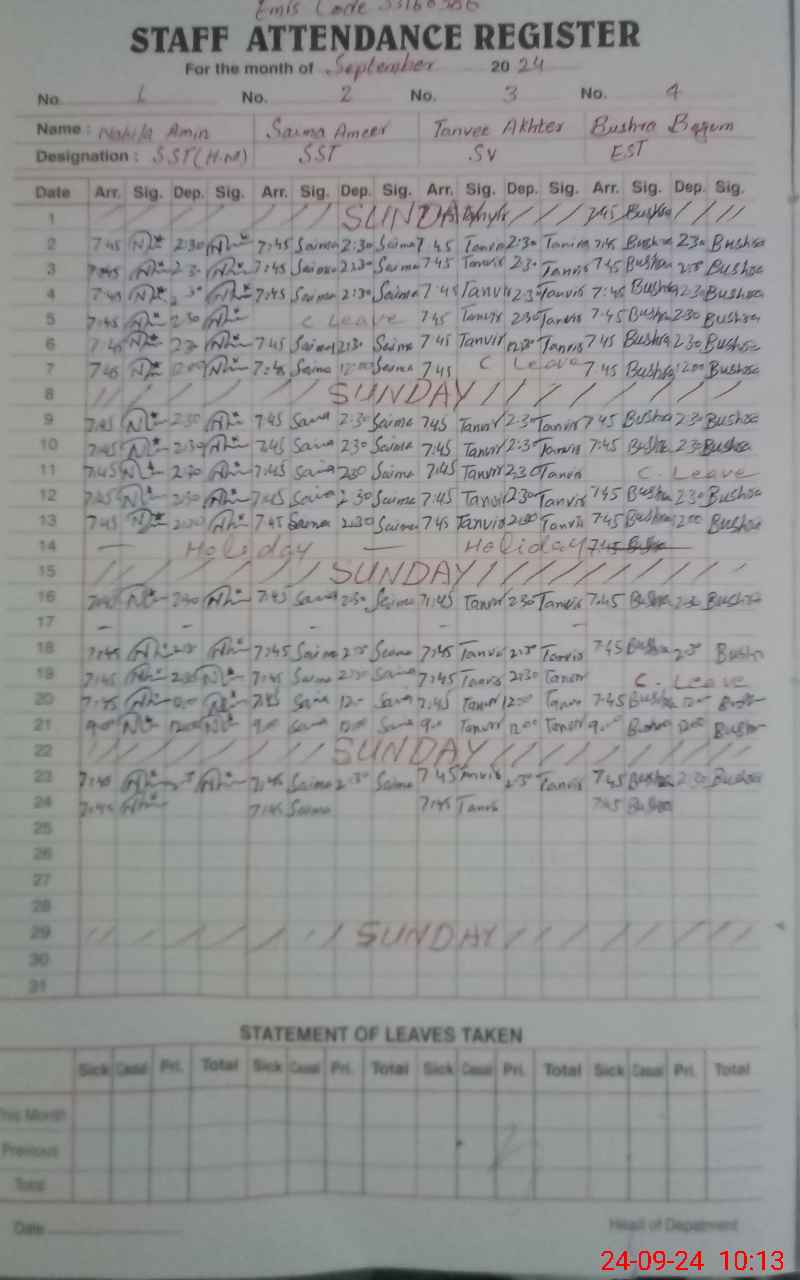 Emis Code
STAFF ATTENDANCE REGISTER
For the month of September 2024
No. 1 No. 2 No. 3 No. 4
Name : Nahila Amin Saima Ameer Tanvee Akhter Bushra Begum
Designation : SST(H.M) SST SV EST
Date Arr. Sig. Dep. Sig. Arr. Sig. Dep. Sig. Arr. Sig. Dep. Sig. Arr. Sig. Dep. Sig.
1 SUNDAY 7:45 Bushra
2 7:45 2:30 7:45 Saima 2:30 Saima 7:45 Tanvir 2:30 Tanvir 7:45 Bushra 2:30 Bushra
3 7:45 2:30 7:45 Saima 2:30 Saima 7:45 Tanvir 2:30 Tanvir 7:45 Bushra 2:30 Bushra
4 7:45 7:45 Saima 2:30 Saima 7:45 Tanvir 2:30 Tanvir 7:45 Bushra 2:30 Bushra
5 7:45 2:30 C Leave 7:45 Tanvir 2:30 Tanvir 7:45 Bushra 2:30 Bushra
6 7:45 2:30 7:45 Saima 2:30 Saima 7:45 Tanvir 12:30 Tanvir 7:45 Bushra 2:30 Bushra
7 7:45 12:00 7:45 Saima 12:00 Saima 7:45 C Leave 7:45 Bushra 12:00 Bushra
8 SUNDAY
9 7:45 2:30 7:45 Saima 2:30 Saima 7:45 Tanvir 2:30 Tanvir 7:45 Bushra 2:30 Bushra
10 7:45 2:30 7:45 Saima 2:30 Saima 7:45 Tanvir 2:30 Tanvir 7:45 Bushra 2:30 Bushra
11 7:45 2:30 7:45 Saima 2:30 Saima 7:45 Tanvir 2:30 Tanvir C. Leave
12 7:45 2:30 7:45 Saima 2:30 Saima 7:45 Tanvir 2:30 Tanvir 7:45 Bushra 2:30 Bushra
13 7:45 7:45 Saima 2:30 Saima 7:45 Tanvir Tanvir 7:45 Bushra 12:00 Bushra
14 — Holiday — Holiday 7:45 Bushra
15 SUNDAY
16 7:45 2:30 7:45 Saima 2:30 Saima 7:45 Tanvir 2:30 Tanvir 7:45 Bushra 2:30 Bushra
17 - - - - -
18 7:45 7:45 Saima 2:30 Saima 7:45 Tanvir 2:30 Tanvir 7:45 Bushra 2:30 Bushra
19 7:45 2:30 7:45 Saima 2:30 Saima 7:45 Tanvir 2:30 Tanvir C. Leave
20 7:45 12:00 7:45 Saima 12:00 Saima 7:45 Tanvir 12:00 Tanvir 7:45 Bushra 12:00 Bushra
21 9:00 12:00 9:00 Saima 12:00 Saima 9:00 Tanvir 12:00 Tanvir 9:00 Bushra 12:00 Bushra
22 SUNDAY
23 7:45 7:45 Saima 2:30 Saima 7:45 Tanvir 2:30 Tanvir 7:45 Bushra 2:30 Bushra
24 7:45 7:45 Saima 7:45 Tanvir 7:45 Bushra
25
26
27
28
29 SUNDAY
30
31
STATEMENT OF LEAVES TAKEN
Sick Casual Pri. Total Sick Casual Pri. Total Sick Casual Pri. Total Sick Casual Pri. Total
This Month
Previous
Total
Date Head of Department
24-09-24 10:13